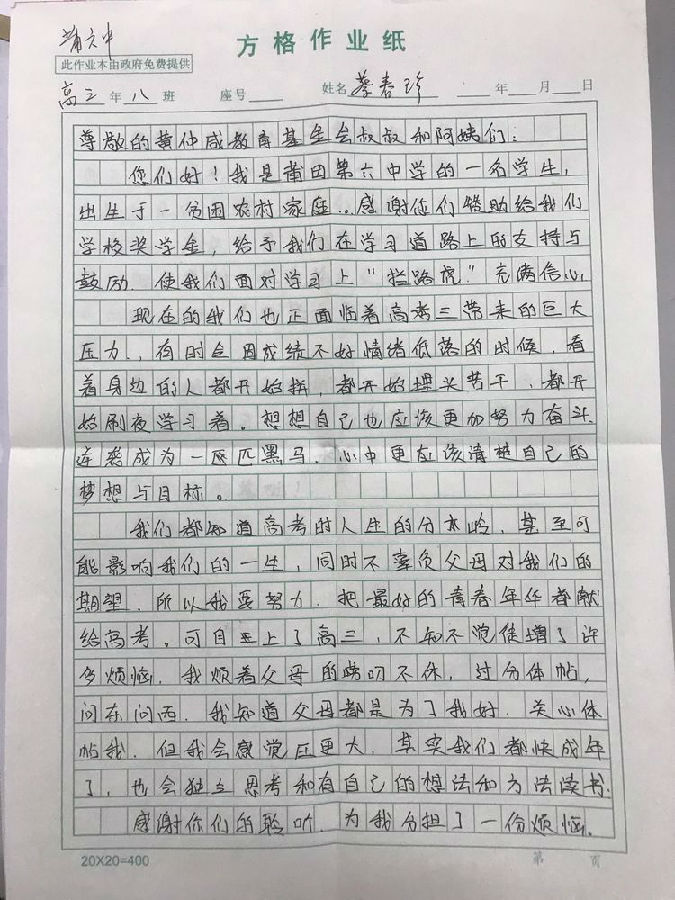 莆六中
方格作业纸
此作业本由政府免费提供
高三年八班 座号 姓名蔡春珍 年 月 日
尊敬的黄仲咸教育基金会叔叔和阿姨们:
您们好!我是莆田第六中学的一名学生,
出生于一贫困农村家庭..感谢您们赞助给我们
学校奖学金,给予我们在学习道路上的支持与
鼓励.使我们面对学习上"拦路虎"充满信心.
现在的我们也正面临着高考三带来的巨大
压力.,有时会因成绩不好情绪低落的时候,看
着身边的人都开始拼,都开始埋头苦干,都开
始刷夜学习着.想想自己也应该更加努力奋斗.
逆袭成为一匹匹黑马.心中更应该清楚自己的
梦想与目标。
我们都知道高考时人生的分水岭,甚至可
能影响我们的一生,同时不辜负父母对我们的
期望.所以我要努力.把最好的青春年华都献
给高考,可自上了高三,不知不觉徒增了许
多烦恼.我烦着父母的唠叨不休,过分体帖,
问东问西.我知道父母都是为了我好.关心体
帖我.但我会感觉压更大.其实我们都快成年
了,也会独立思考和有自己的想法和方法读书.
感谢你们的聆听.为我分担了一份烦恼.
20X20=400 第 页